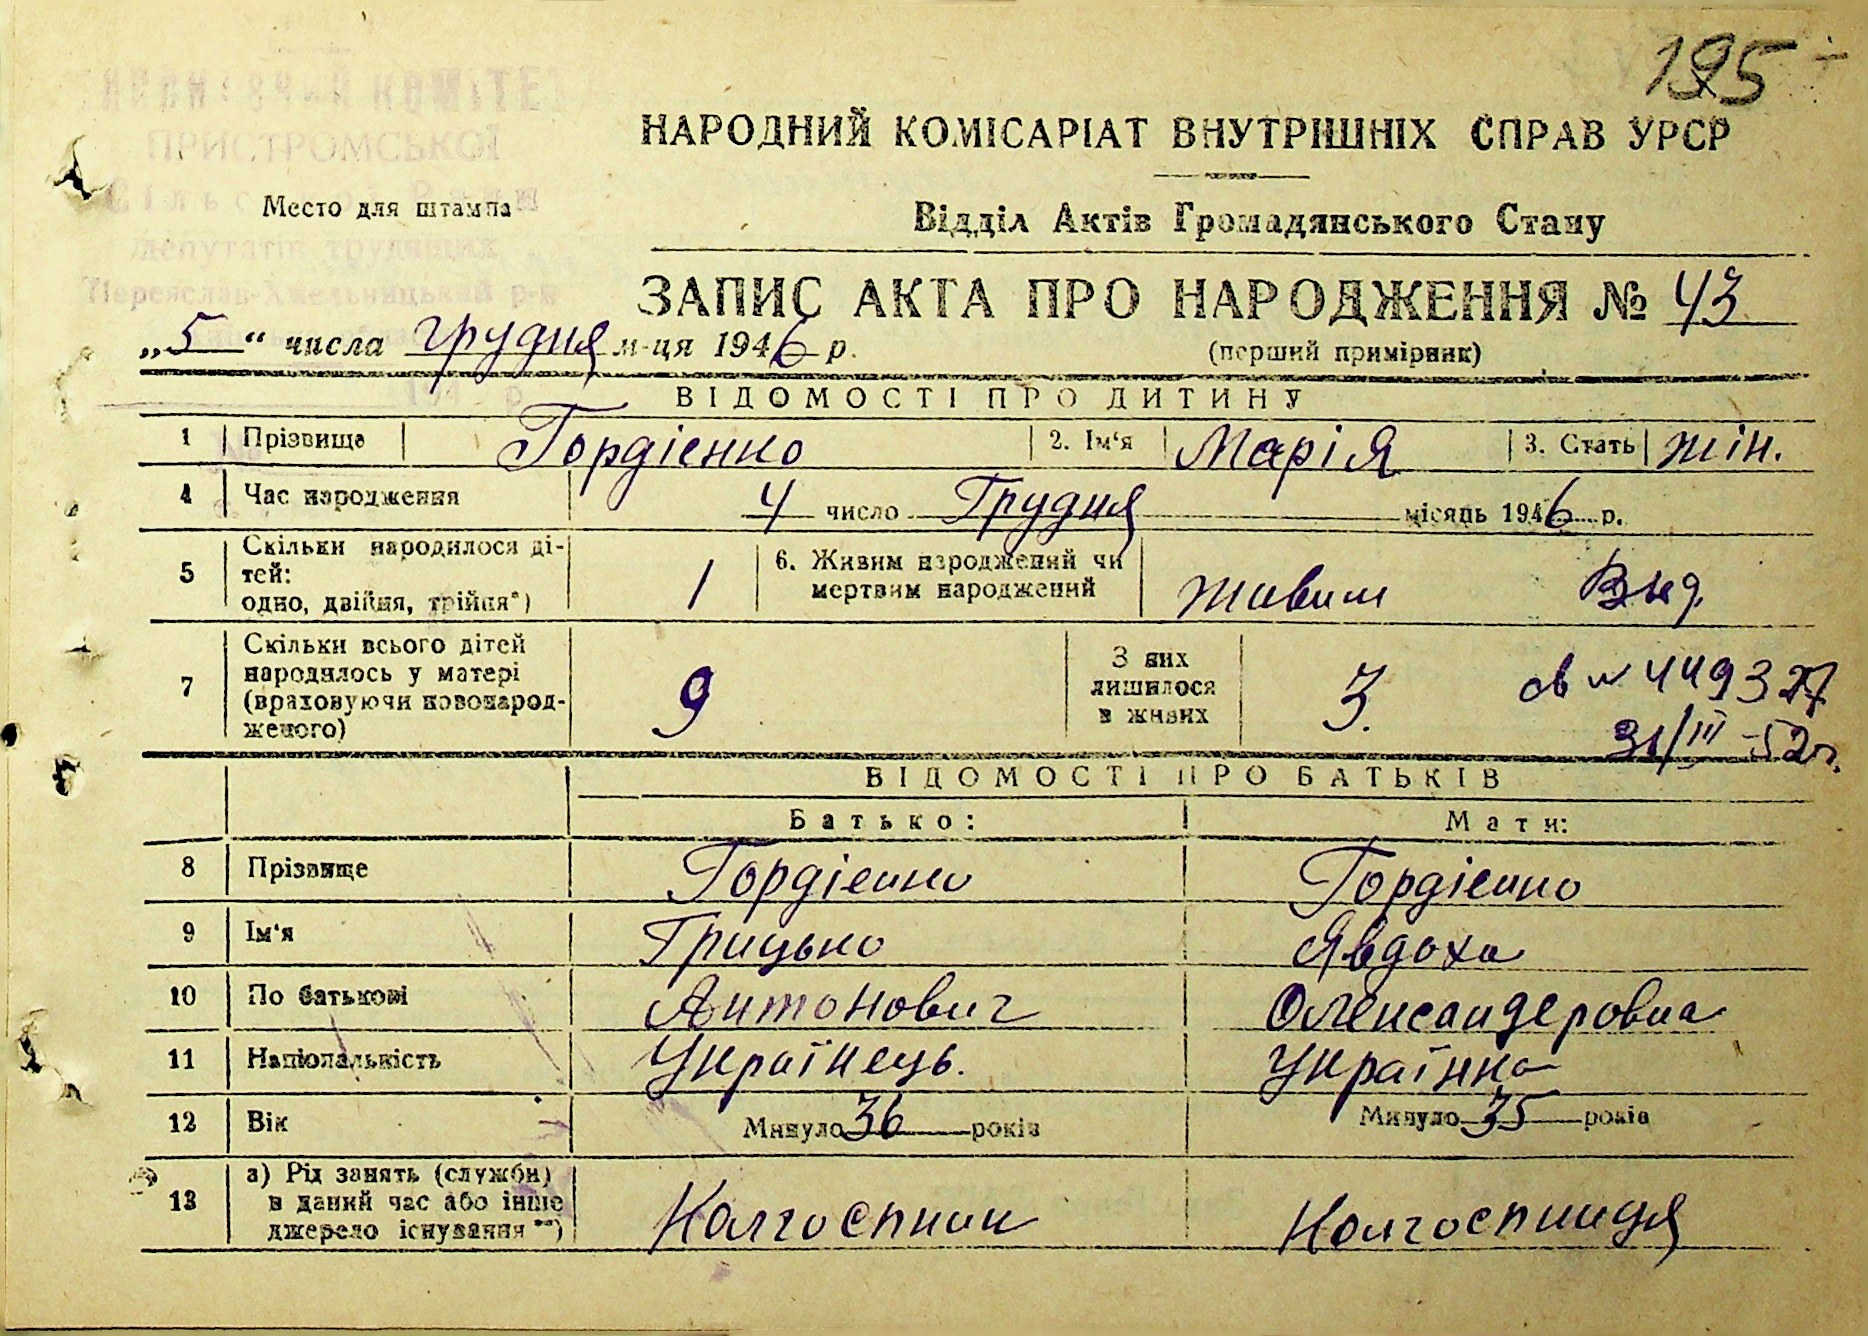 195
ПРИСТРОМСЬКОЇ
НАРОДНИЙ КОМІСАРІАТ ВНУТРІШНІХ СПРАВ УРСР
Место для штампа
Відділ Актів Громадянського Стану
депутатів трудящих
Переяслав-Хмельницький р-н
ЗАПИС АКТА ПРО НАРОДЖЕННЯ № 43
„5“ числа грудня м-ця 1946 р.
(перший примірник)
ВІДОМОСТІ ПРО ДИТИНУ
1 Прізвище Гордієнко 2. Ім‘я Марія 3. Стать жін.
4 Час народження 4 число Грудня місяць 1946 р.
5 Скільки народилося ді-
тей:
одно, двійня, трійня*) 1 6. Живим народжений чи
мертвим народжений живим Выд.
7 Скільки всього дітей
народилось у матері
(враховуючи новонарод-
женого) 9 З них
лишилося
в живих 3.
св № 449327
31/III-52г.
ВІДОМОСТІ ПРО БАТЬКІВ
Батько: Мати:
8 Прізвище Гордієнко Гордієнко
9 Ім‘я Грицько Явдоха
10 По батькові Антонович Олександеровна
11 Національність Українець. Українка
12 Вік Минуло 36 років Минуло 35 років
13 а) Рід занять (служби)
в даний час або інше
джерело існування **) Колгоспник Колгоспниця